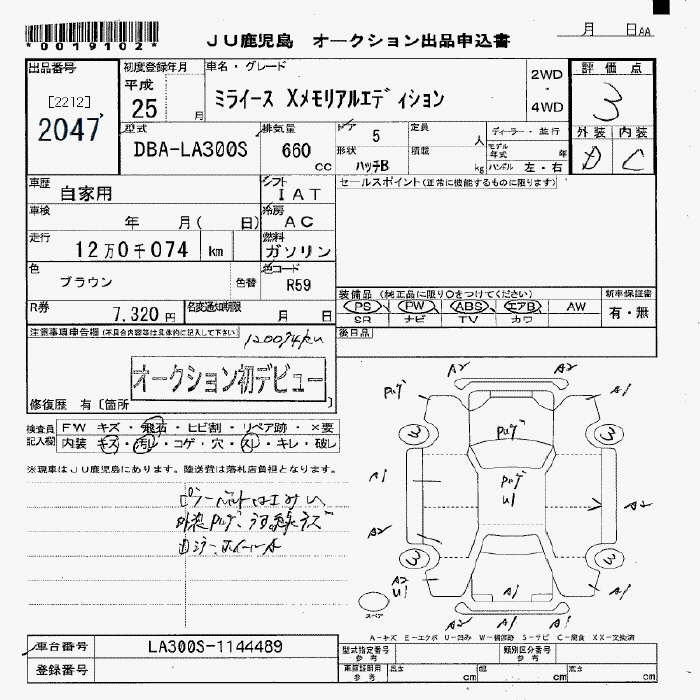 *0019102*
JU鹿児島 オークション出品申込書
月 日AA
出品番号
[2212]
2047
初度登録年月
平成
25 月
車名・グレード
ミライース Xメモリアルエディション
2WD
・
4WD
評価点
3
外装 内装
D C
型式
DBA-LA300S
排気量
660
cc
ドア 5
形状 ハッチB
定員 人
積載 kg
ディーラー・並行
モデル年式 年
ハンドル 左・右
車歴
自家用
シフト
IAT
セールスポイント(正常に機能するものに限ります)
車検
年 月( 日)
冷房
AC
走行
12万0千074 km
燃料
ガソリン
色
ブラウン
色替
色コード
R59
装備品(純正品に限り○をつけてください)
PS PW ABS エアB AW
SR ナビ TV カワ
新車保証書
有・無
R券
7,320円
名変通知期限
月 日
後日品
注意事項申告欄(不具合内容等は具体的に記入して下さい)
120074km
オークション初デビュー
修復歴 有〔箇所
検査員記入欄
FW キズ・飛石・ヒビ割・リペア跡・×要
内装 キズ・汚レ・コゲ・穴・スレ・キレ・破レ
※現車はJU鹿児島にあります。陸送費は落札店負担となります。
A2 A2
A1
3 3
A1
U1
A2
A2
3 3
A2
U1
A1 A1
A1
A2 A2 A1
スペア
A-キズ E-エクボ U-凹み W-補修跡 S-サビ C-腐食 XX-交換済
車台番号
LA300S-1144489
登録番号
型式指定番号
参考
類別区分番号
参考
車庫証明用
参考
長さ cm
幅 cm
高さ cm